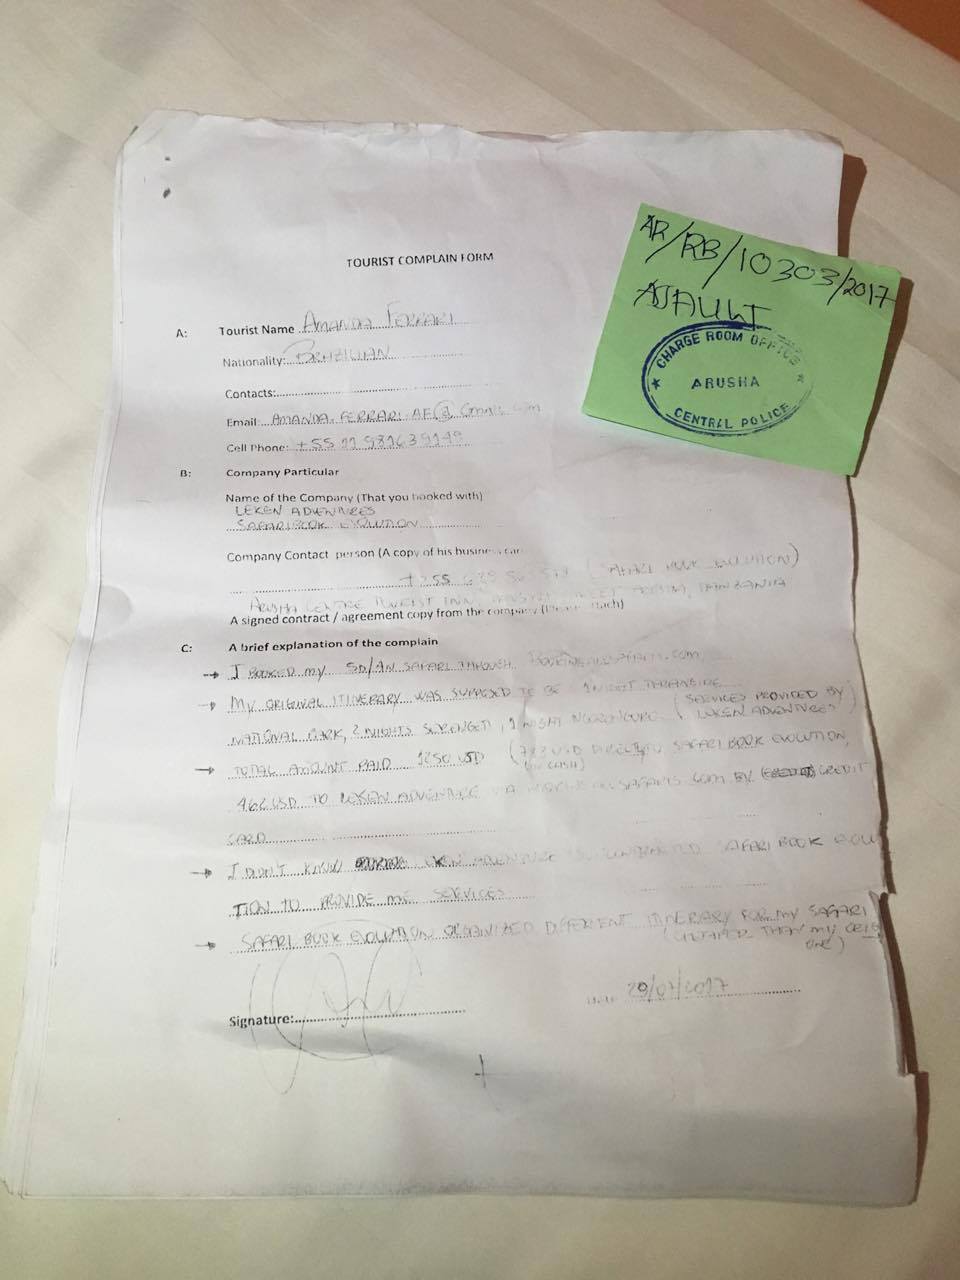 AR/RB/10303/2017
CHARGE ROOM OFFICE
ARUSHA
CENTRAL POLICE
TOURIST COMPLAIN FORM
A: Tourist Name AMANDA FERRARI
Nationality: BRAZILIAN
Contacts:
Email: AMANDA.FERRARI.AF@GMAIL.COM
Cell Phone: +55 11
B: Company Particular
Name of the Company (That you booked with)
LEKEN ADVENTURES
SAFARI BOOK EVOLUTION
Company Contact person (A copy of his business car
+255 (SAFARI BOOK EVOLUTION)
ARUSHA CENTRE TOURIST INN, TANZANIA
A signed contract / agreement copy from the company (Please attach)
C: A brief explanation of the complain
→ I BOOKED MY 5D/4N SAFARI THROUGH
→ MY ORIGINAL ITINERARY WAS SUPPOSED TO BE 1 NIGHT TARANGIRE
NATIONAL PARK, 2 NIGHTS SERENGETI, 1 NIGHT NGORONGORO (SERVICES PROVIDED BY
LEKEN ADVENTURES)
→ TOTAL AMOUNT PAID 1250 USD (USD DIRECT TO SAFARI BOOK EVOLUTION,
CASH)
462 USD TO LEKEN ADVENTURE VIA BY CREDIT
CARD
→ I DIDN'T KNOW LEKEN ADVENTURE SAFARI BOOK EVOLU
TION TO PROVIDE ME SERVICES
→ SAFARI BOOK EVOLUTION ORGANIZED DIFFERENT ITINERARY FOR MY SAFARI
(CHEAPER THAN MY
ONE)
Signature:
29/07/2017